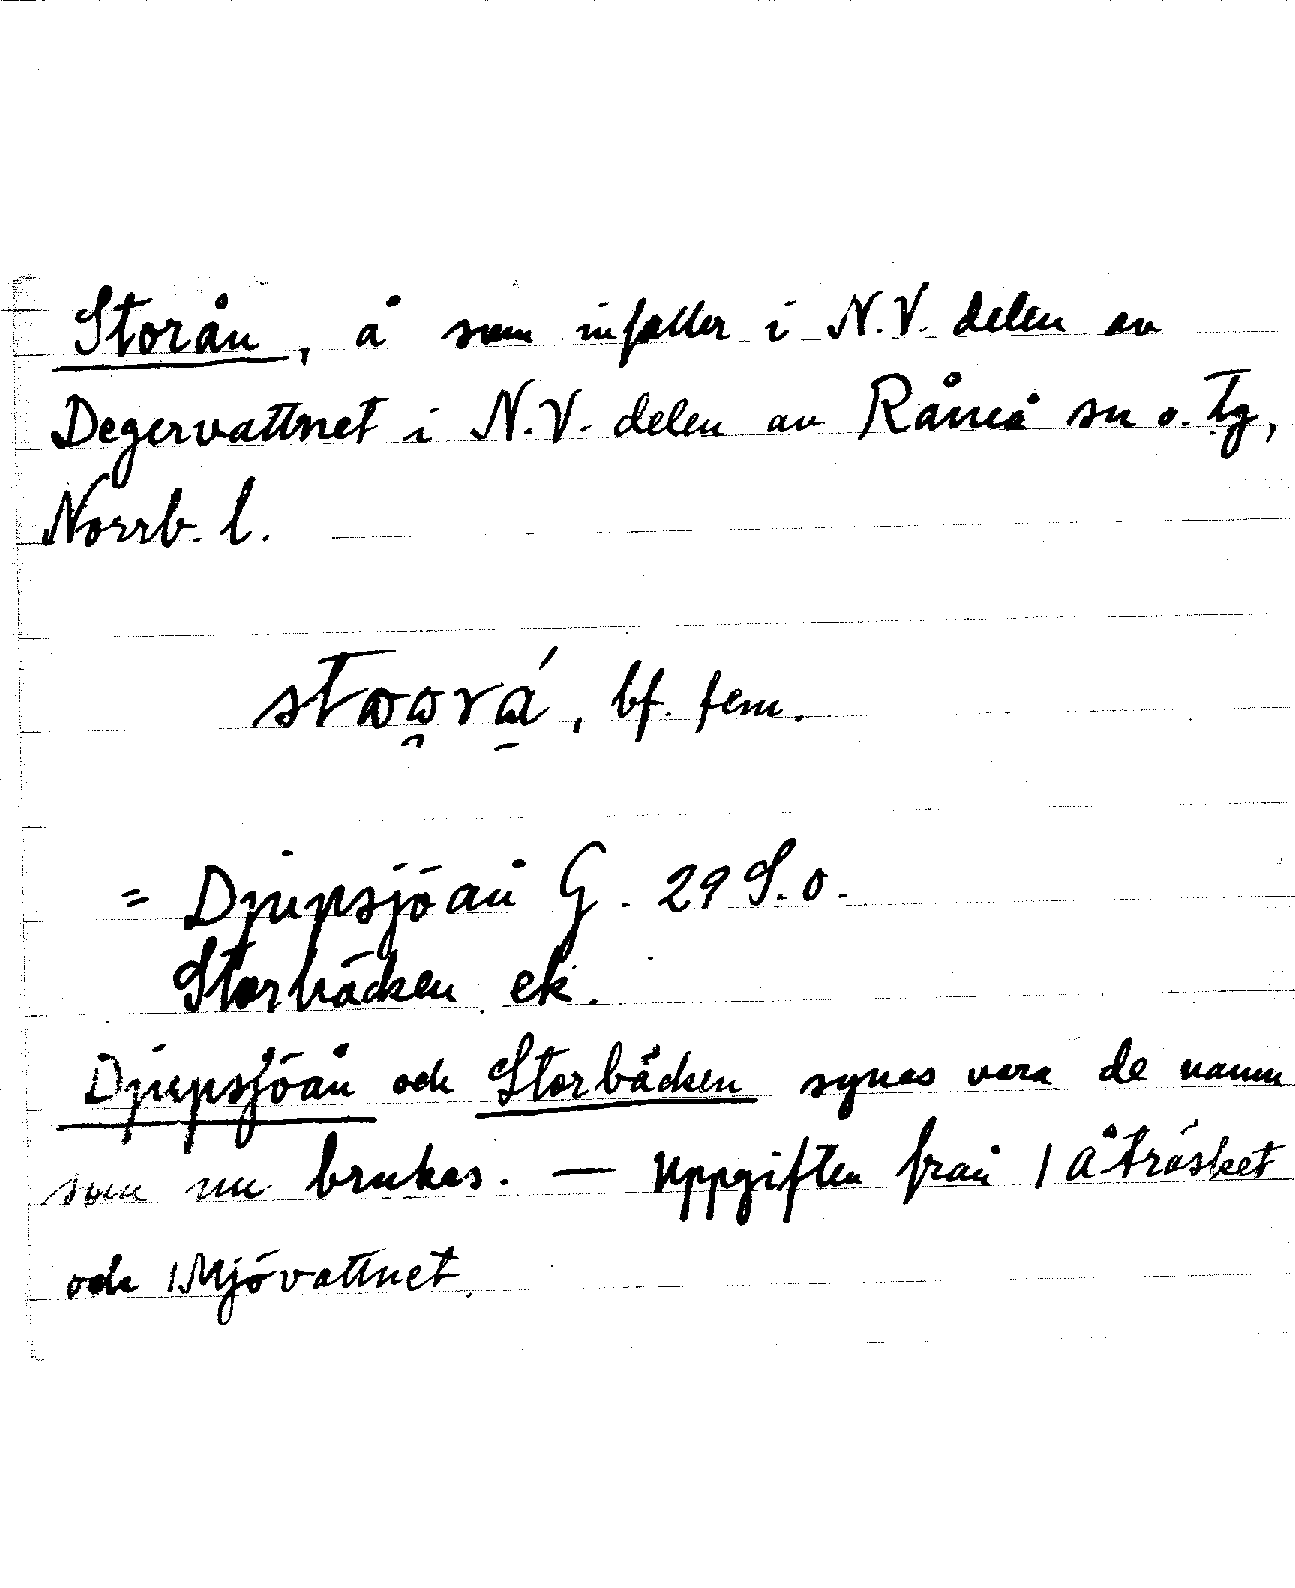 Storån, å som infaller i N.V. delen av
Degervattnet i N.V. delen av Råneå sn o. Tg,
Norrb. l.
bf. fem.
= Djupsjöån G. 29 S.o.
Storbäcken ek.
Djupsjöån och Storbäcken synas vara de namn
som nu brukas. — Uppgiften från / Åträsket
och / Mjövattnet.